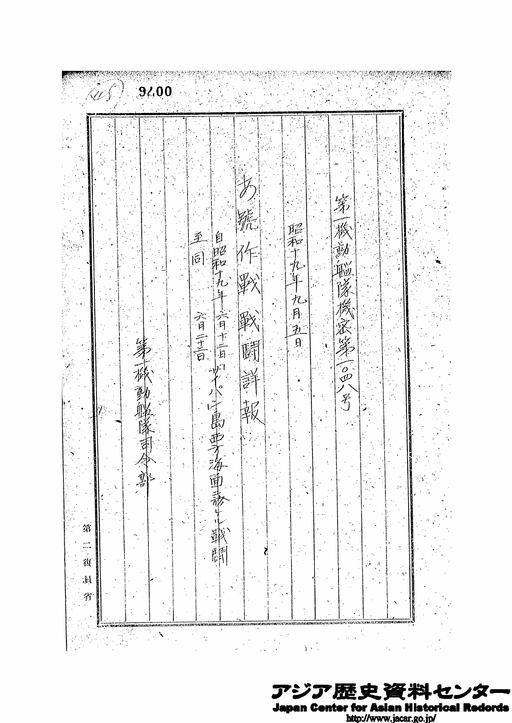 (45)
0076
第一機動艦隊機密第一〇四八号
昭和十九年九月五日
あ號作戰戰鬪詳報
自昭和十九年六月十三日
至同 六月二十二日
サイパン島西方海面ニ於ケル戰鬪
第一機動艦隊司令部
第二復員省
アジア歴史資料センター
Japan Center for Asian Historical Records
http://www.jacar.go.jp/